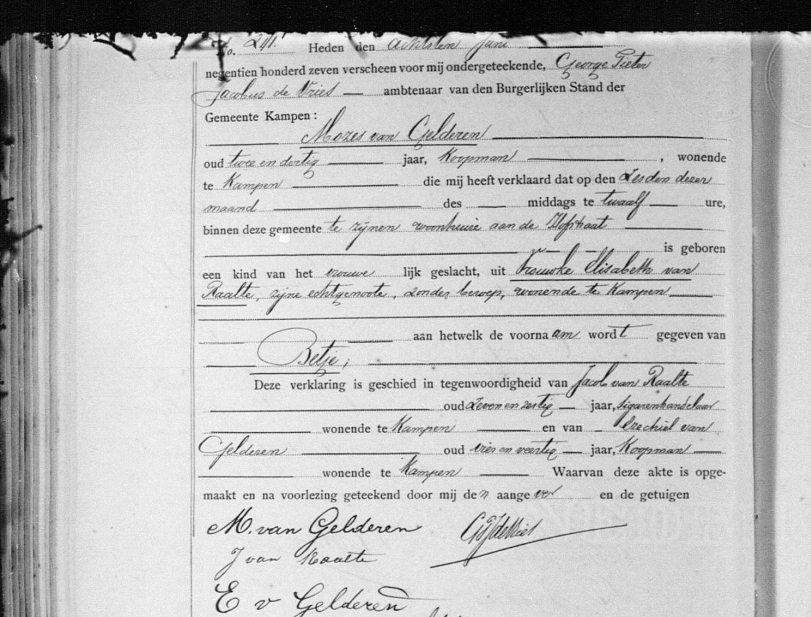 No. 241. Heden den achtsten Juni
negentien honderd zeven verscheen voor mij ondergeteekende, George Pieter
Jacobus de Vries ambtenaar van den Burgerlijken Stand der
Gemeente Kampen:
Mozes van Gelderen
oud twee en dertig jaar, Koopman, wonende
te Kampen die mij heeft verklaard dat op den Zesden dezer
maand des middags te twaalf ure,
binnen deze gemeente te zijnen woonhuize aan de Hofstraat
is geboren
een kind van het vrouwe lijk geslacht, uit Vrouwke Elisabeth van
Raalte, zijne echtgenoote, zonder beroep, wonende te Kampen
aan hetwelk de voornaam wordt gegeven van
Betje;
Deze verklaring is geschied in tegenwoordigheid van Jacob van Raalte
oud Zeven en zestig jaar, sigarenhandelaar
wonende te Kampen en van Ezechiel van
Gelderen oud vier en veertig jaar, Koopman
wonende te Kampen Waarvan deze akte is opge-
maakt en na voorlezing geteekend door mij den aangever en de getuigen
M. van Gelderen
J van Raalte
E v Gelderen